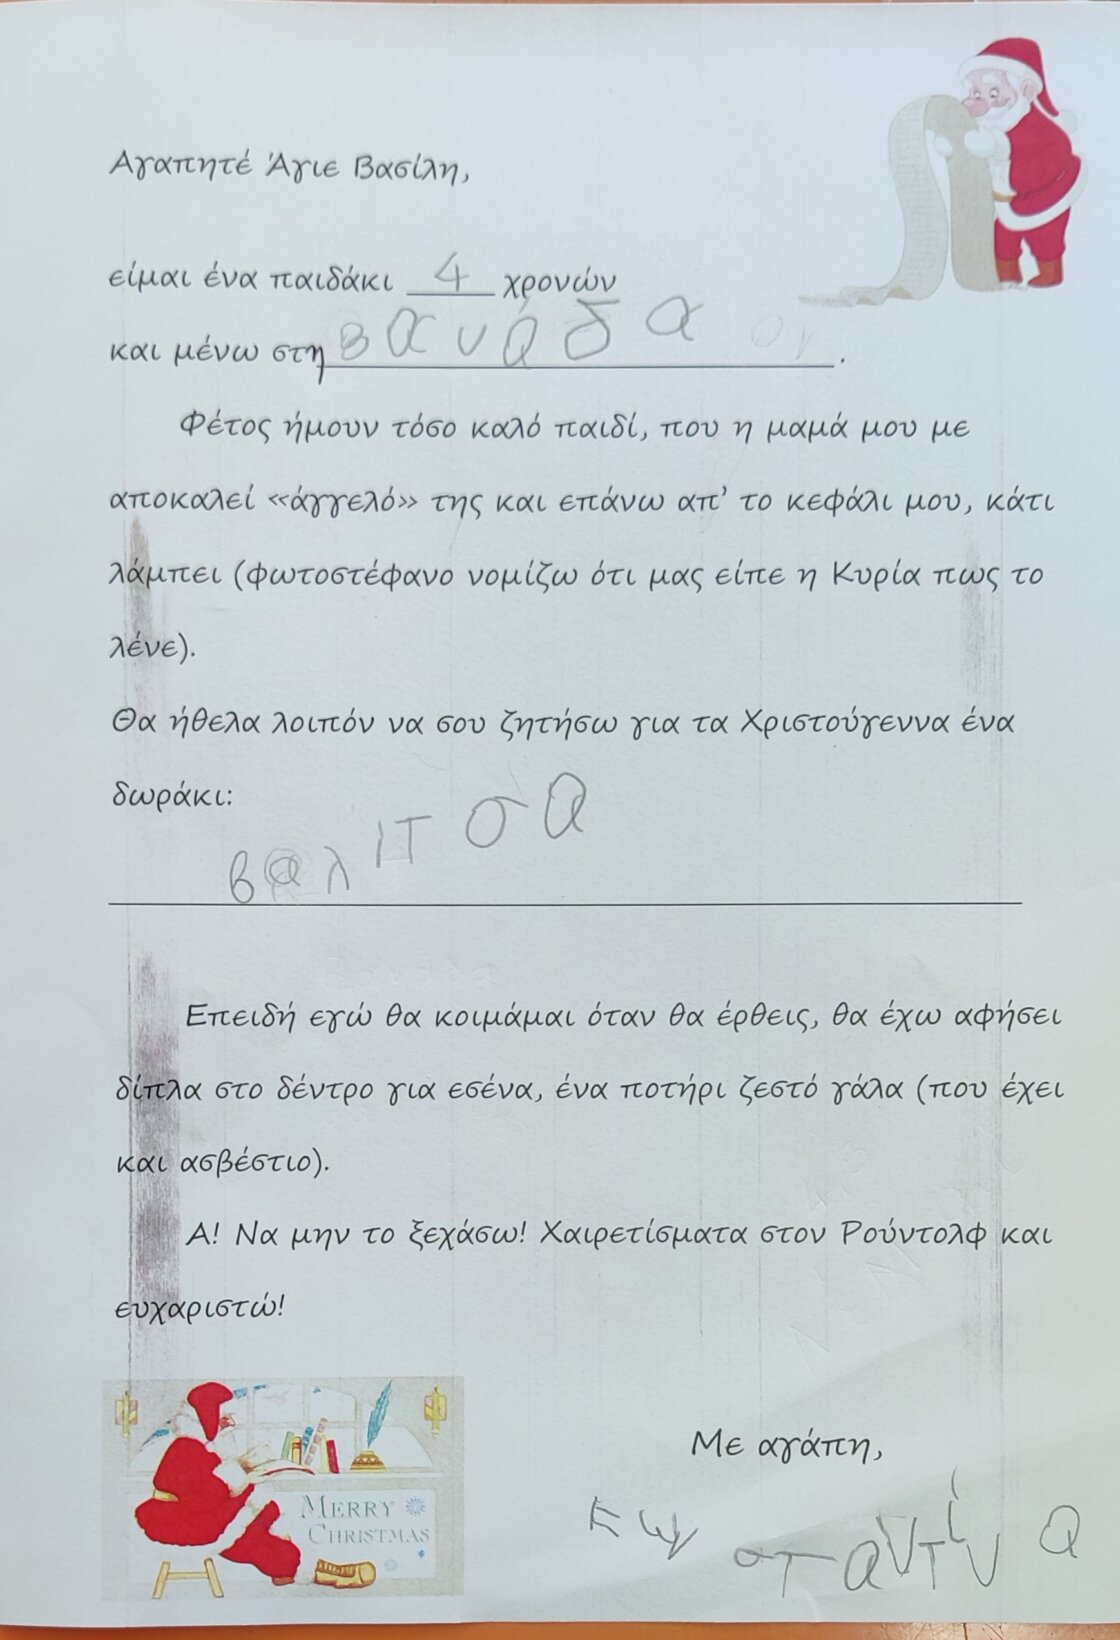 Αγαπητέ Άγιε Βασίλη,
είμαι ένα παιδάκι 4 χρονών
και μένω στη βαυάδα.
Φέτος ήμουν τόσο καλό παιδί, που η μαμά μου με
αποκαλεί «άγγελό» της και επάνω απ' το κεφάλι μου, κάτι
λάμπει (φωτοστέφανο νομίζω ότι μας είπε η Κυρία πως το
λένε).
Θα ήθελα λοιπόν να σου ζητήσω για τα Χριστούγεννα ένα
δωράκι:
βαλιτσα
Επειδή εγώ θα κοιμάμαι όταν θα έρθεις, θα έχω αφήσει
δίπλα στο δέντρο για εσένα, ένα ποτήρι ζεστό γάλα (που έχει
και ασβέστιο).
Α! Να μην το ξεχάσω! Χαιρετίσματα στον Ρούντολφ και
ευχαριστώ!
Με αγάπη,
Κωνσταντίνα
MERRY
CHRISTMAS